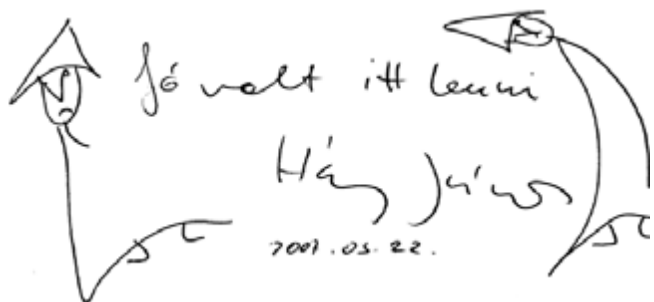 Jó volt itt lenni
Háy János
2001.05.22.